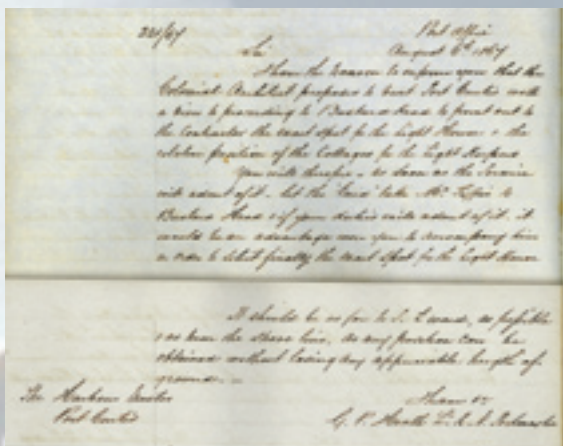 221/67
Port Office
August 6th 1867
Sir
I have the honor to inform you that the
Colonial Architect proposes to visit Port Curtis with
a view to proceeding to Bustard Head to point out to
the Contractor the exact spot for the Light House & the
relative position of the Cottages for the Light Keepers
You will therefore as soon as the Service
will admit of it let the take Mr. Tiffin to
Bustard Head & if your duties will admit of it, it
would be an advantage were you to accompany him
in order to select finally the exact spot for the Light House
It should be as far to S. Eward, as possible
& as near the shore line, as any position can be
obtained without losing any appreciable height of
ground.
The Harbour Master
Port Curtis
I have &c
G. P. Heath Lt. R. N. Portmaster